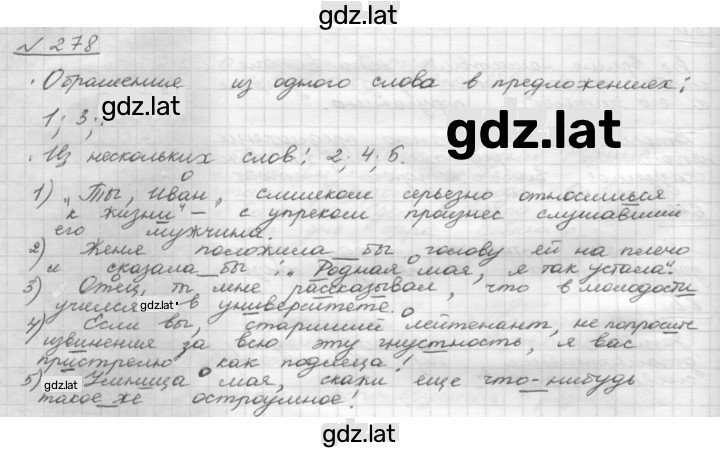 gdz.lat
№ 278
Обращения из одного слова в предложениях:
1; 3;
gdz.lat
gdz.lat
Из нескольких слов: 2; 4; 5.
1) „Ты, Иван, слишком серьезно относишься
к жизни" – с упреком произнес слушавший
его мужчина.
2) Женя положила бы голову ей на плечо
и сказала бы: „Родная моя, я так устала".
3) Отец, ты мне рассказывал, что в молодости
учился в университете.
gdz.lat
4) Если вы, старший лейтенант, не попросите
извинения за всю эту гнустность, я вас
пристрелю как подлеца!
5) Умница моя, скажи еще что-нибудь
gdz.lat
такое же остроумное!
gdz.lat